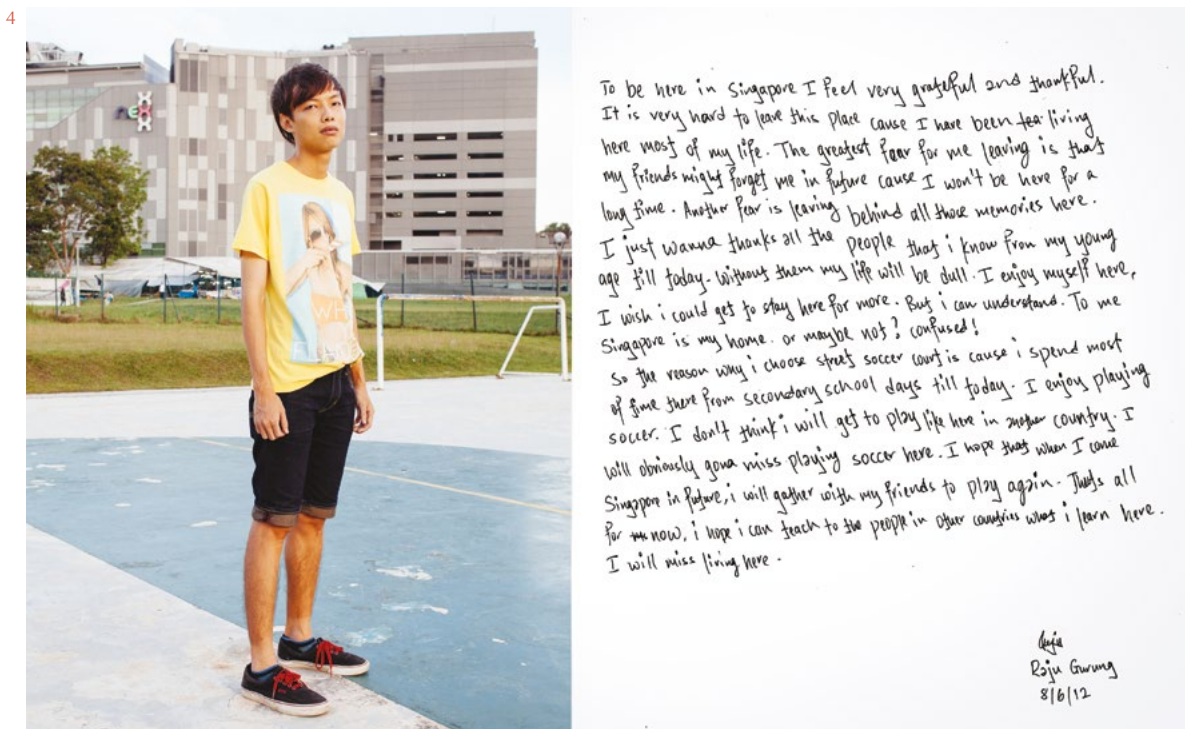 4
nex
WH
To be here in Singapore I feel very grateful and thankful.
It is very hard to leave this place cause I have been tea living
here most of my life. The greatest fear for me leaving is that
my friends might forget me in future cause I won't be here for a
long time. Another fear is leaving behind all those memories here.
I just wanna thanks all the people that i know from my young
age till today. Without them my life will be dull. I enjoy myself here,
I wish i could get to stay here for more. But i can understand. To me
Singapore is my home. or maybe not? confused!
So the reason why i choose street soccer court is cause i spend most
of time there from secondary school days till today. I enjoy playing
soccer. I don't think i will get to play like here in another country. I
will obviously gona miss playing soccer here. I hope that when I came
Singapore in future, i will gather with my friends to play again. Thats all
for now, i hope i can teach to the people in other countries what i learn here.
I will miss living here.
Raju Gurung
8/6/12